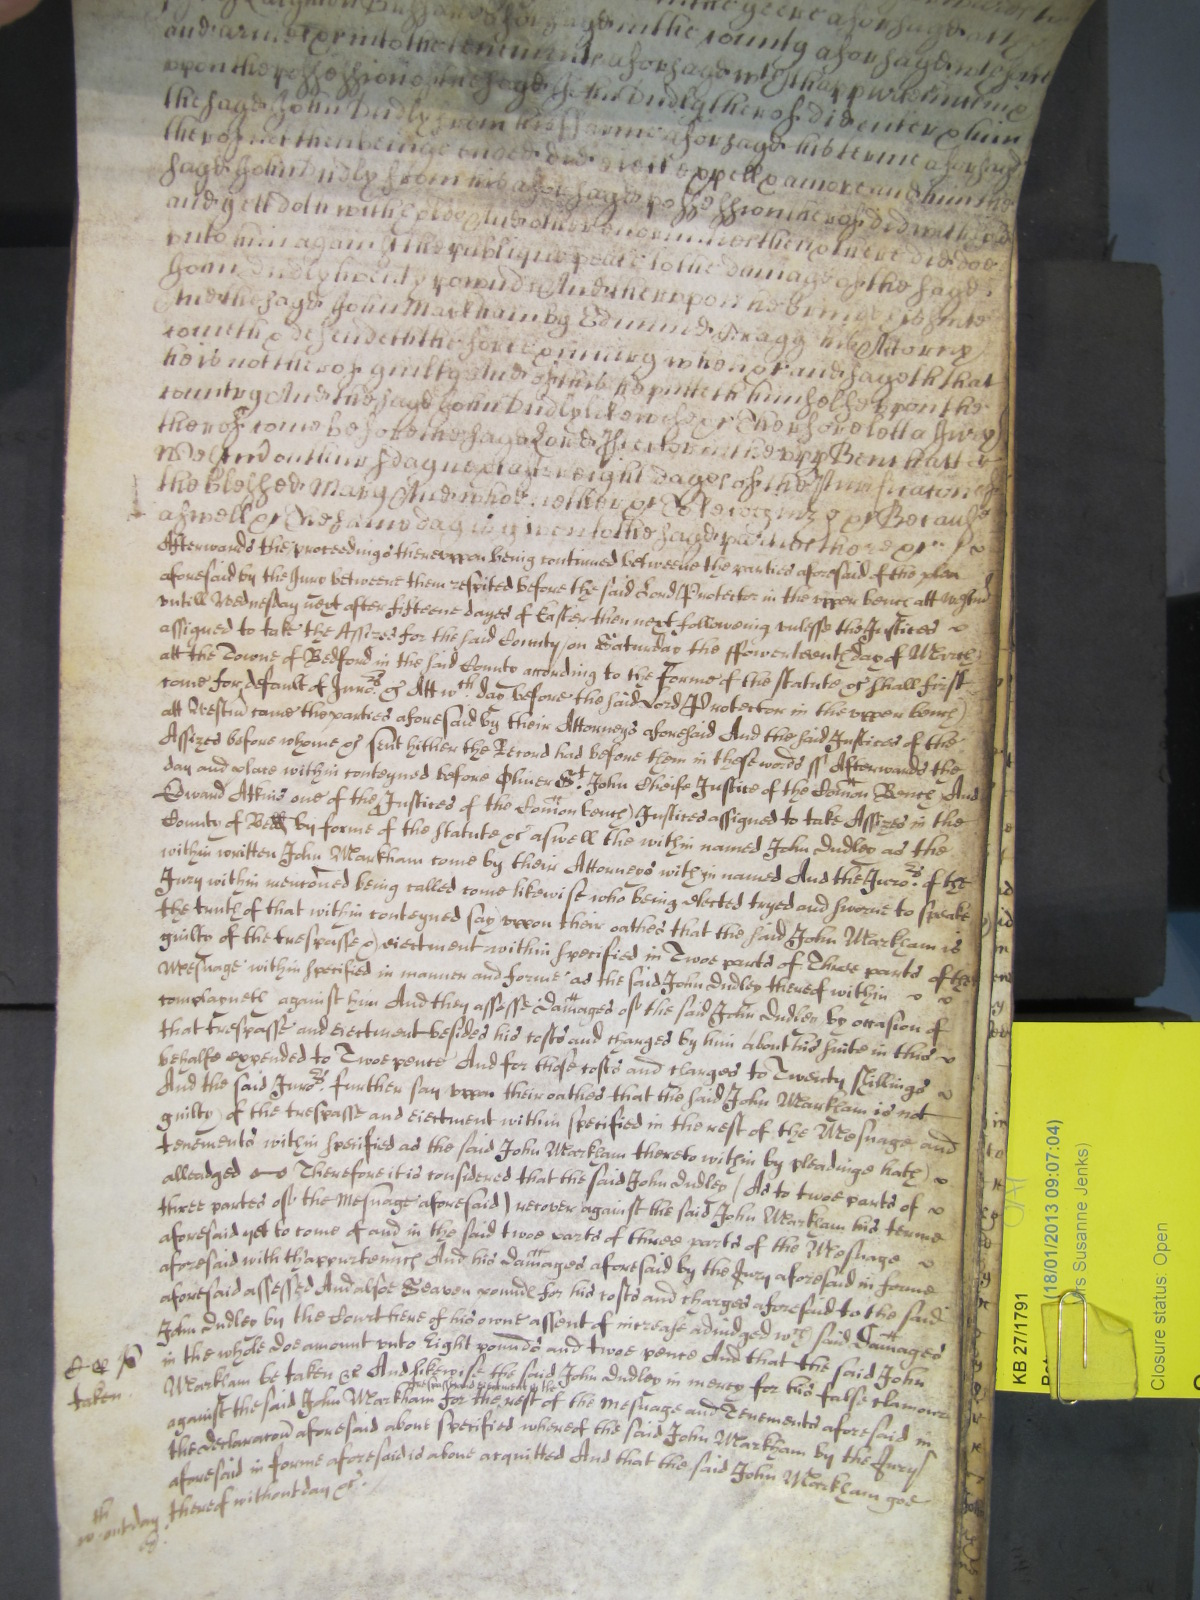 and arms &c into the tenements aforsayd wth thappurtenance
vpon the possession of the sayd John Dudly therof did enter & him
the sayd John Dudly from his Farme aforsayd his terme aforsayd
therof not then beinge ended did eiect expell & amove and him the
sayd John Dudly from his aforsayd possession therof did withhold
and yett doth withhold And other enormities then & there did doe
vnto him against the publique peace to the damage of the sayd
John Dudly twenty pownds And therevpon he brings his suite
And the sayd John Markham by Edmund Gragg his Attorny
cometh & defendeth the force & iniury when &c and sayeth that
he is not therof guilty And of this he putteth himselfe vpon the
country And the sayd John Dudly likewise &c Therfore lett a Jury
therof come before the sayd Lord Protector in the vpper Bench att
Westm on thursday next after eight dayes of the Purification of
the blessed Mary And who neither &c To recognize &c Because
aswell &c The same day is given to the sayd parties there &c
Afterwards the proceedings therevppon being continued betweene the parties aforesaid of the plea
aforesaid by the Jury betweene them respited before the said Lord Protector in the vpper bench att Westm
vntill Wednesday next after fifteene dayes of Easter then next followeing vnlesse the Justices
assigned to take the Assizes for the said County on Saturday the ffowerteenth day of March
att the Towne of Bedford in the said County according to the Forme of the statute &c shall first
come for default of Juro.rs &c Att wch. day before the said Lord Protector in the vpper bench
att Westm come the parties aforesaid by their Attorneys aforesaid And the said Justices of the
Assizes before whome &c sent hither the Record had before them in these words ss Afterwards the
day and place within conteyned before Oliver St. John Cheife Justice of the Comon Bench And
Edward Atkins one of the Justices of the Comon bench Justices assigned to take Assizes in the
County of Bedd by forme of the statute &c aswell the within named John Dudley as the
within written John Markham come by their Attorneys within named And the Juro.rs of the
Jury within mencioned being called come likewise who being elected tryed and sworne to speake
the truth of that within conteyned say vppon their oathes that the said John Markham is
guilty of the trespasse & eiectment within specified in Twoe parts of Three parts of the
Mesuage within specified in manner and forme as the said John Dudley thereof within
complayneth against him And they assesse Damages of the said John Dudley by occasion of
that trespasse and eiectment besides his costs and charges by him about his suite in this
behalfe expended to Twoe pence And for those costs and charges to Twenty shillings
And the said Juro.rs further say vppon their oathes that the said John Markham is not
guilty of the trespasse and eiectment within specified in the rest of the Mesuage and
tenements within specified as the said John Markham thereto within by pleadinge hath
alleadged Therefore it is considered that the said John Dudley (As to twoe parts of
three partes of the Mesuage aforesaid) recover against the said John Markham his terme
aforesaid yet to come of and in the said twoe parts of three parts of the Mesuage
aforesaid with thappurtennces And his damages aforesaid by the Jury aforesaid in forme
aforesaid assessed And alsoe Seaven pounds for his costs and charges aforesaid to the said
John Dudley by the Court here of his owne assent of increase adiudged wch said Damages
in the whole doe amount vnto Eight pounds and twoe pence And that the said John
taken
Markham be taken &c And likewise the said John Dudley in mercy for his false clamour
against the said John Markham for the rest of the Mesuage and Tenements aforesaid in
the declaracon aforesaid above specified whereof the said John Markham by the Jury
aforesaid in forme aforesaid is above acquitted And that the said John Markham goe
thereof without day &c.
wth out day
KB 27/1791
(18/01/2013 09:07:04)
Susanne Jenks)
Closure status: Open